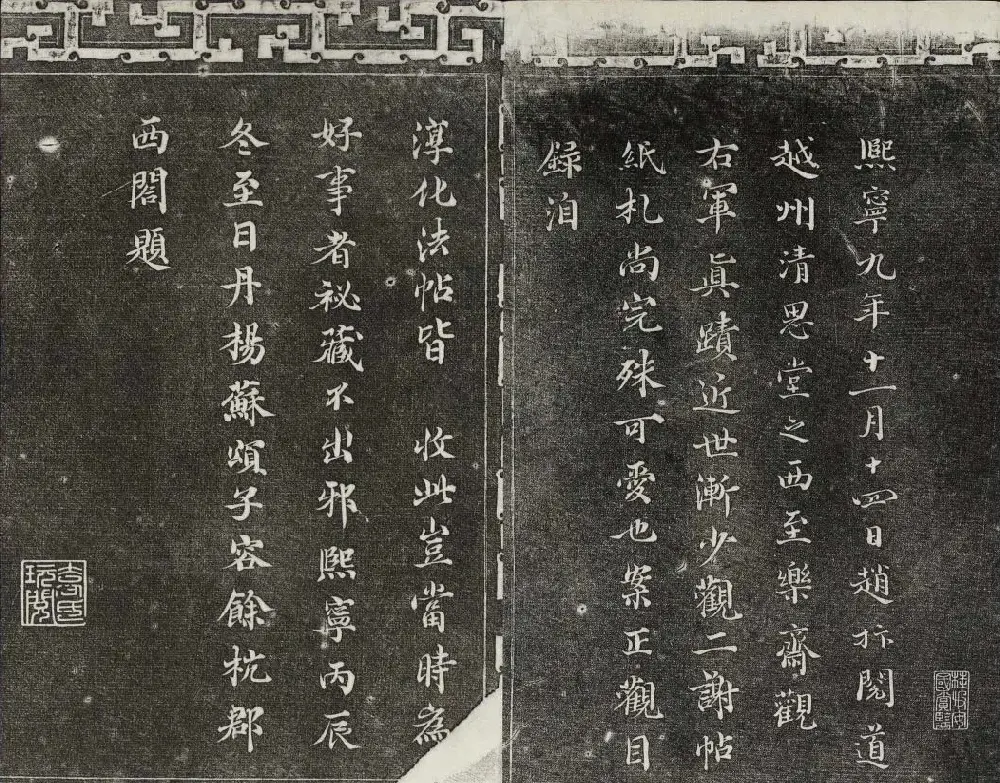 熙寧九年十一月十四日趙抃閱道
越州清思堂之西至樂齋觀
右軍真蹟近世漸少觀二謝帖
紙札尚完殊可愛也案正觀目
録洎
淳化法帖皆 收此豈當時為
好事者祕藏不出邪熙寧丙辰
冬至日丹楊蘇頌子容餘杭郡
西閣題